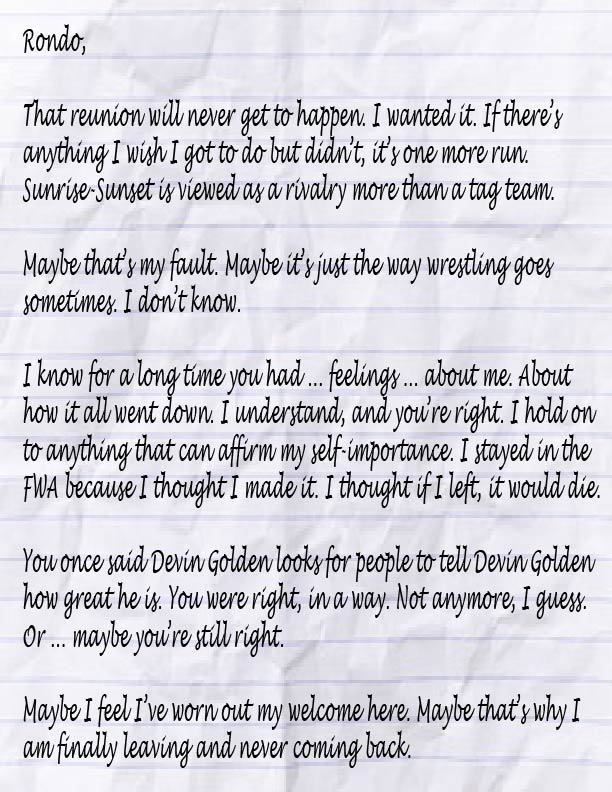 Rondo,
That reunion will never get to happen. I wanted it. If there's
anything I wish I got to do but didn't, it's one more run.
Sunrise-Sunset is viewed as a rivalry more than a tag team.
Maybe that's my fault. Maybe it's just the way wrestling goes
sometimes. I don't know.
I know for a long time you had ... feelings ... about me. About
how it all went down. I understand, and you're right. I hold on
to anything that can affirm my self-importance. I stayed in the
FWA because I thought I made it. I thought if I left, it would die.
You once said Devin Golden looks for people to tell Devin Golden
how great he is. You were right, in a way. Not anymore, I guess.
Or ... maybe you're still right.
Maybe I feel I've worn out my welcome here. Maybe that's why I
am finally leaving and never coming back.